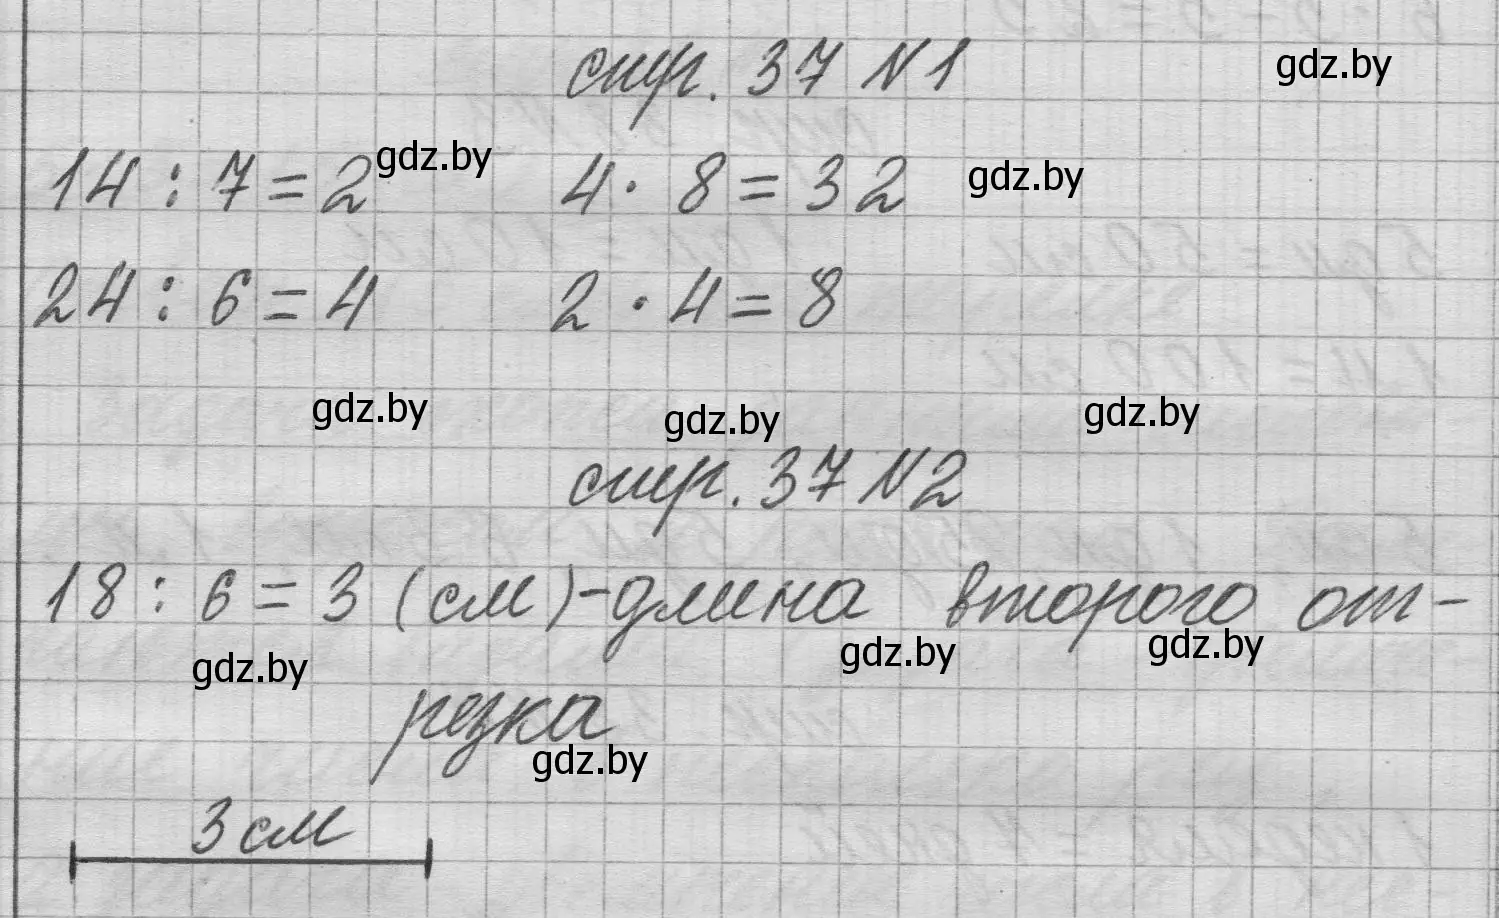 стр. 37 N1
gdz.by
14 : 7 = 2
gdz.by
4 · 8 = 32
gdz.by
24 : 6 = 4
2 · 4 = 8
gdz.by
gdz.by
gdz.by
стр. 37 N2
18 : 6 = 3 (см) - длина второго от-
gdz.by
gdz.by
gdz.by
резка
gdz.by
3 см